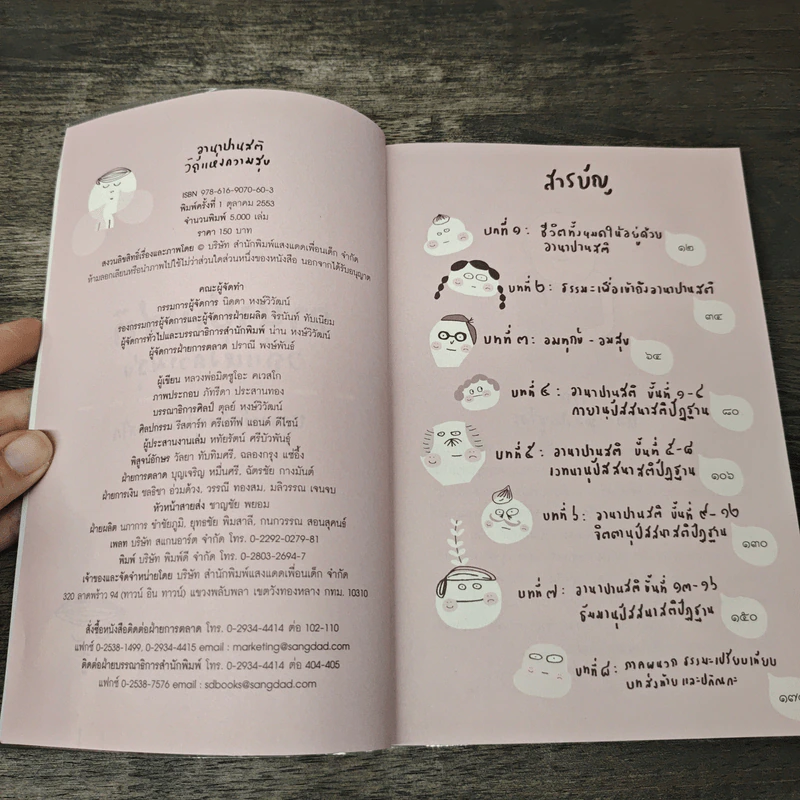 อานาปานสติ
วิถีแห่งความสุข
ISBN 978-616-9070-60-3
พิมพ์ครั้งที่ 1 ตุลาคม 2553
จำนวนพิมพ์ 5,000 เล่ม
ราคา 150 บาท
สงวนลิขสิทธิ์เรื่องและภาพโดย © บริษัท สำนักพิมพ์แสงแดดเพื่อนเด็ก จำกัด
ห้ามลอกเลียนหรือนำภาพไปใช้ไม่ว่าส่วนใดส่วนหนึ่งของหนังสือ นอกจากได้รับอนุญาต
คณะผู้จัดทำ
กรรมการผู้จัดการ นิดดา หงษ์วิวัฒน์
รองกรรมการผู้จัดการและผู้จัดการฝ่ายผลิต จิรนันท์ ทับเนียม
ผู้จัดการทั่วไปและบรรณาธิการสำนักพิมพ์ น่าน หงษ์วิวัฒน์
ผู้จัดการฝ่ายการตลาด ปราณี พงษ์พันธ์
ผู้เขียน หลวงพ่อมิตซูโอะ คเวสโก
ภาพประกอบ ภัทรีดา ประสานทอง
บรรณาธิการศิลป์ ตุลย์ หงษ์วิวัฒน์
ศิลปกรรม รีสตาร์ท ครีเอทีฟ แอนด์ ดีไซน์
ผู้ประสานงานเล่ม หทัยรัตน์ ศรีบัวพันธุ์
พิสูจน์อักษร วัลยา ทับทิมศรี, ฉลองกรุง แซ่อึ้ง
ฝ่ายการตลาด บุญเจริญ หมื่นศรี, ฉัตรชัย กางมันต์
ฝ่ายการเงิน ชลธิชา อ่วมด้วง, วรรณี ทองสม, มลิวรรณ เจนจบ
หัวหน้าสายส่ง ชาญชัย พยอม
ฝ่ายผลิต นภาการ ขำชัยภูมิ, ยุทธชัย พิมสาลี, กนกวรรณ สอนสุคนธ์
เพลท บริษัท สแกนอาร์ต จำกัด โทร. 0-2292-0279-81
พิมพ์ บริษัท พิมพ์ดี จำกัด โทร. 0-2803-2694-7
เจ้าของและจัดจำหน่ายโดย บริษัท สำนักพิมพ์แสงแดดเพื่อนเด็ก จำกัด
320 ลาดพร้าว 94 (ทาวน์ อิน ทาวน์) แขวงพลับพลา เขตวังทองหลาง กทม. 10310
สั่งซื้อหนังสือติดต่อฝ่ายการตลาด โทร. 0-2934-4414 ต่อ 102-110
แฟกซ์ 0-2538-1499, 0-2934-4415 email : marketing@sangdad.com
ติดต่อฝ่ายบรรณาธิการสำนักพิมพ์ โทร. 0-2934-4414 ต่อ 404-405
แฟกซ์ 0-2538-7576 email : sdbooks@sangdad.com
สารบัญ
บทที่ ๑ : ชีวิตทั้งหมดให้อยู่ด้วย
อานาปานสติ
๑๒
บทที่ ๒ : ธรรมะเพื่อเข้าถึงอานาปานสติ
๓๔
บทที่ ๓ : อมทุกข์ - อมสุข
๖๔
บทที่ ๔ : อานาปานสติ ขั้นที่ ๑-๔
กายานุปัสสนาสติปัฏฐาน
๘๐
บทที่ ๕ : อานาปานสติ ขั้นที่ ๕-๘
เวทนานุปัสสนาสติปัฏฐาน
๑๐๖
บทที่ ๖ : อานาปานสติ ขั้นที่ ๙-๑๒
จิตตานุปัสสนาสติปัฏฐาน
๑๓๐
บทที่ ๗ : อานาปานสติ ขั้นที่ ๑๓-๑๖
ธัมมานุปัสสนาสติปัฏฐาน
๑๕๐
บทที่ ๘ : ภาคผนวก ธรรมะเปรียบเทียบ
บทส่งท้าย และปกิณกะ